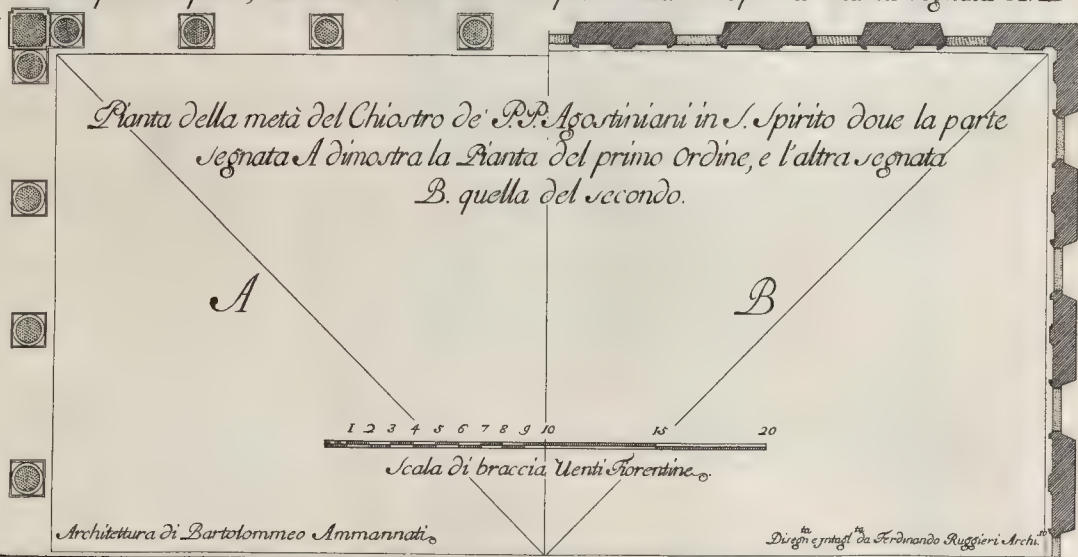 Pianta della metà del Chiostro de' P.P. Agostiniani in S. Spirito doue la parte
segnata A dimostra la Pianta del primo Ordine, e l'altra segnata
B. quella del secondo.
A B
1 2 3 4 5 6 7 8 9 10 15 20
Scala di braccia Uenti Fiorentine.
Architettura di Bartolommeo Ammannati.
Disegn.ta e intagl.ta da Ferdinando Ruggieri Archi.